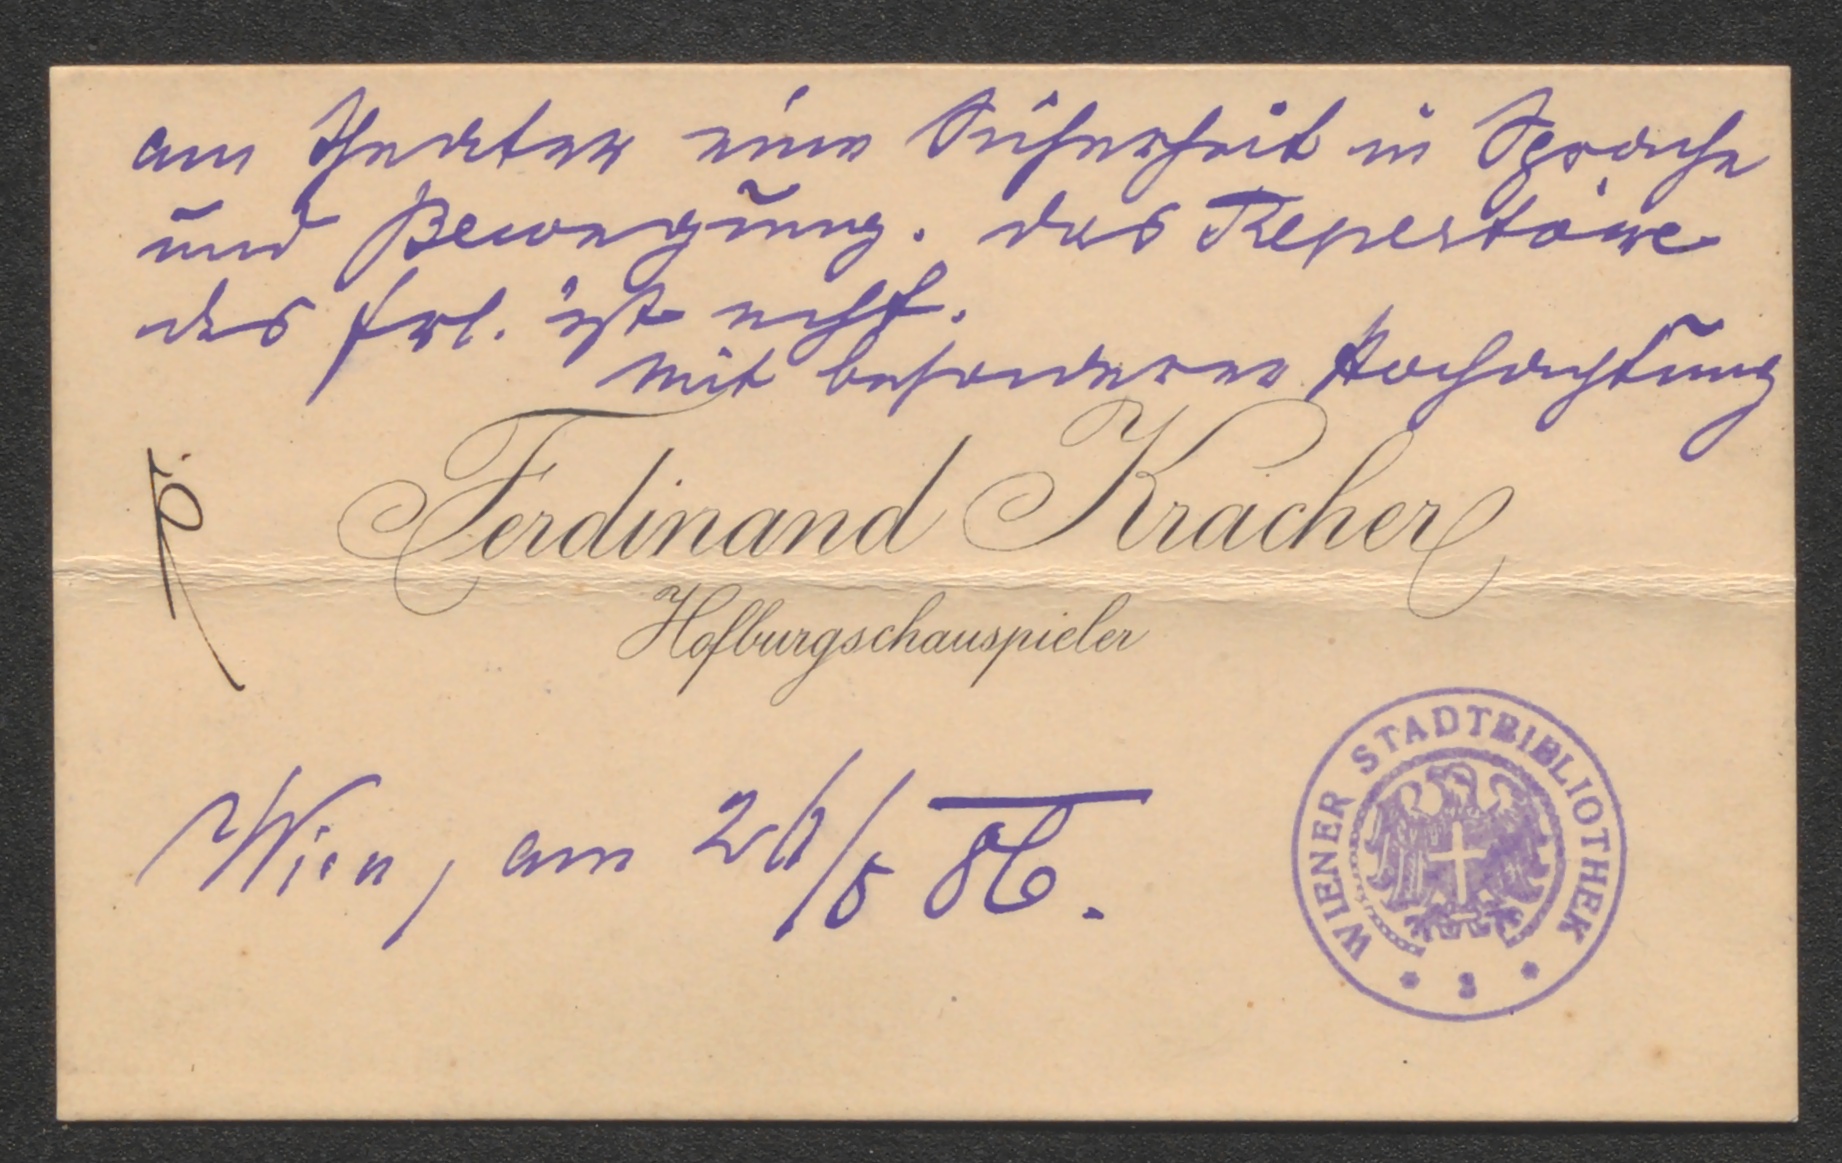 am Theater eine Sicherheit in Sprache
und Bewegung. das Repertoire
des Frl. ist echt.
mit besonderer Hochachtung
Ferdinand Kracher
Hofburgschauspieler
Wien, am 26/5 86.
WIENER STADTBIBLIOTHEK